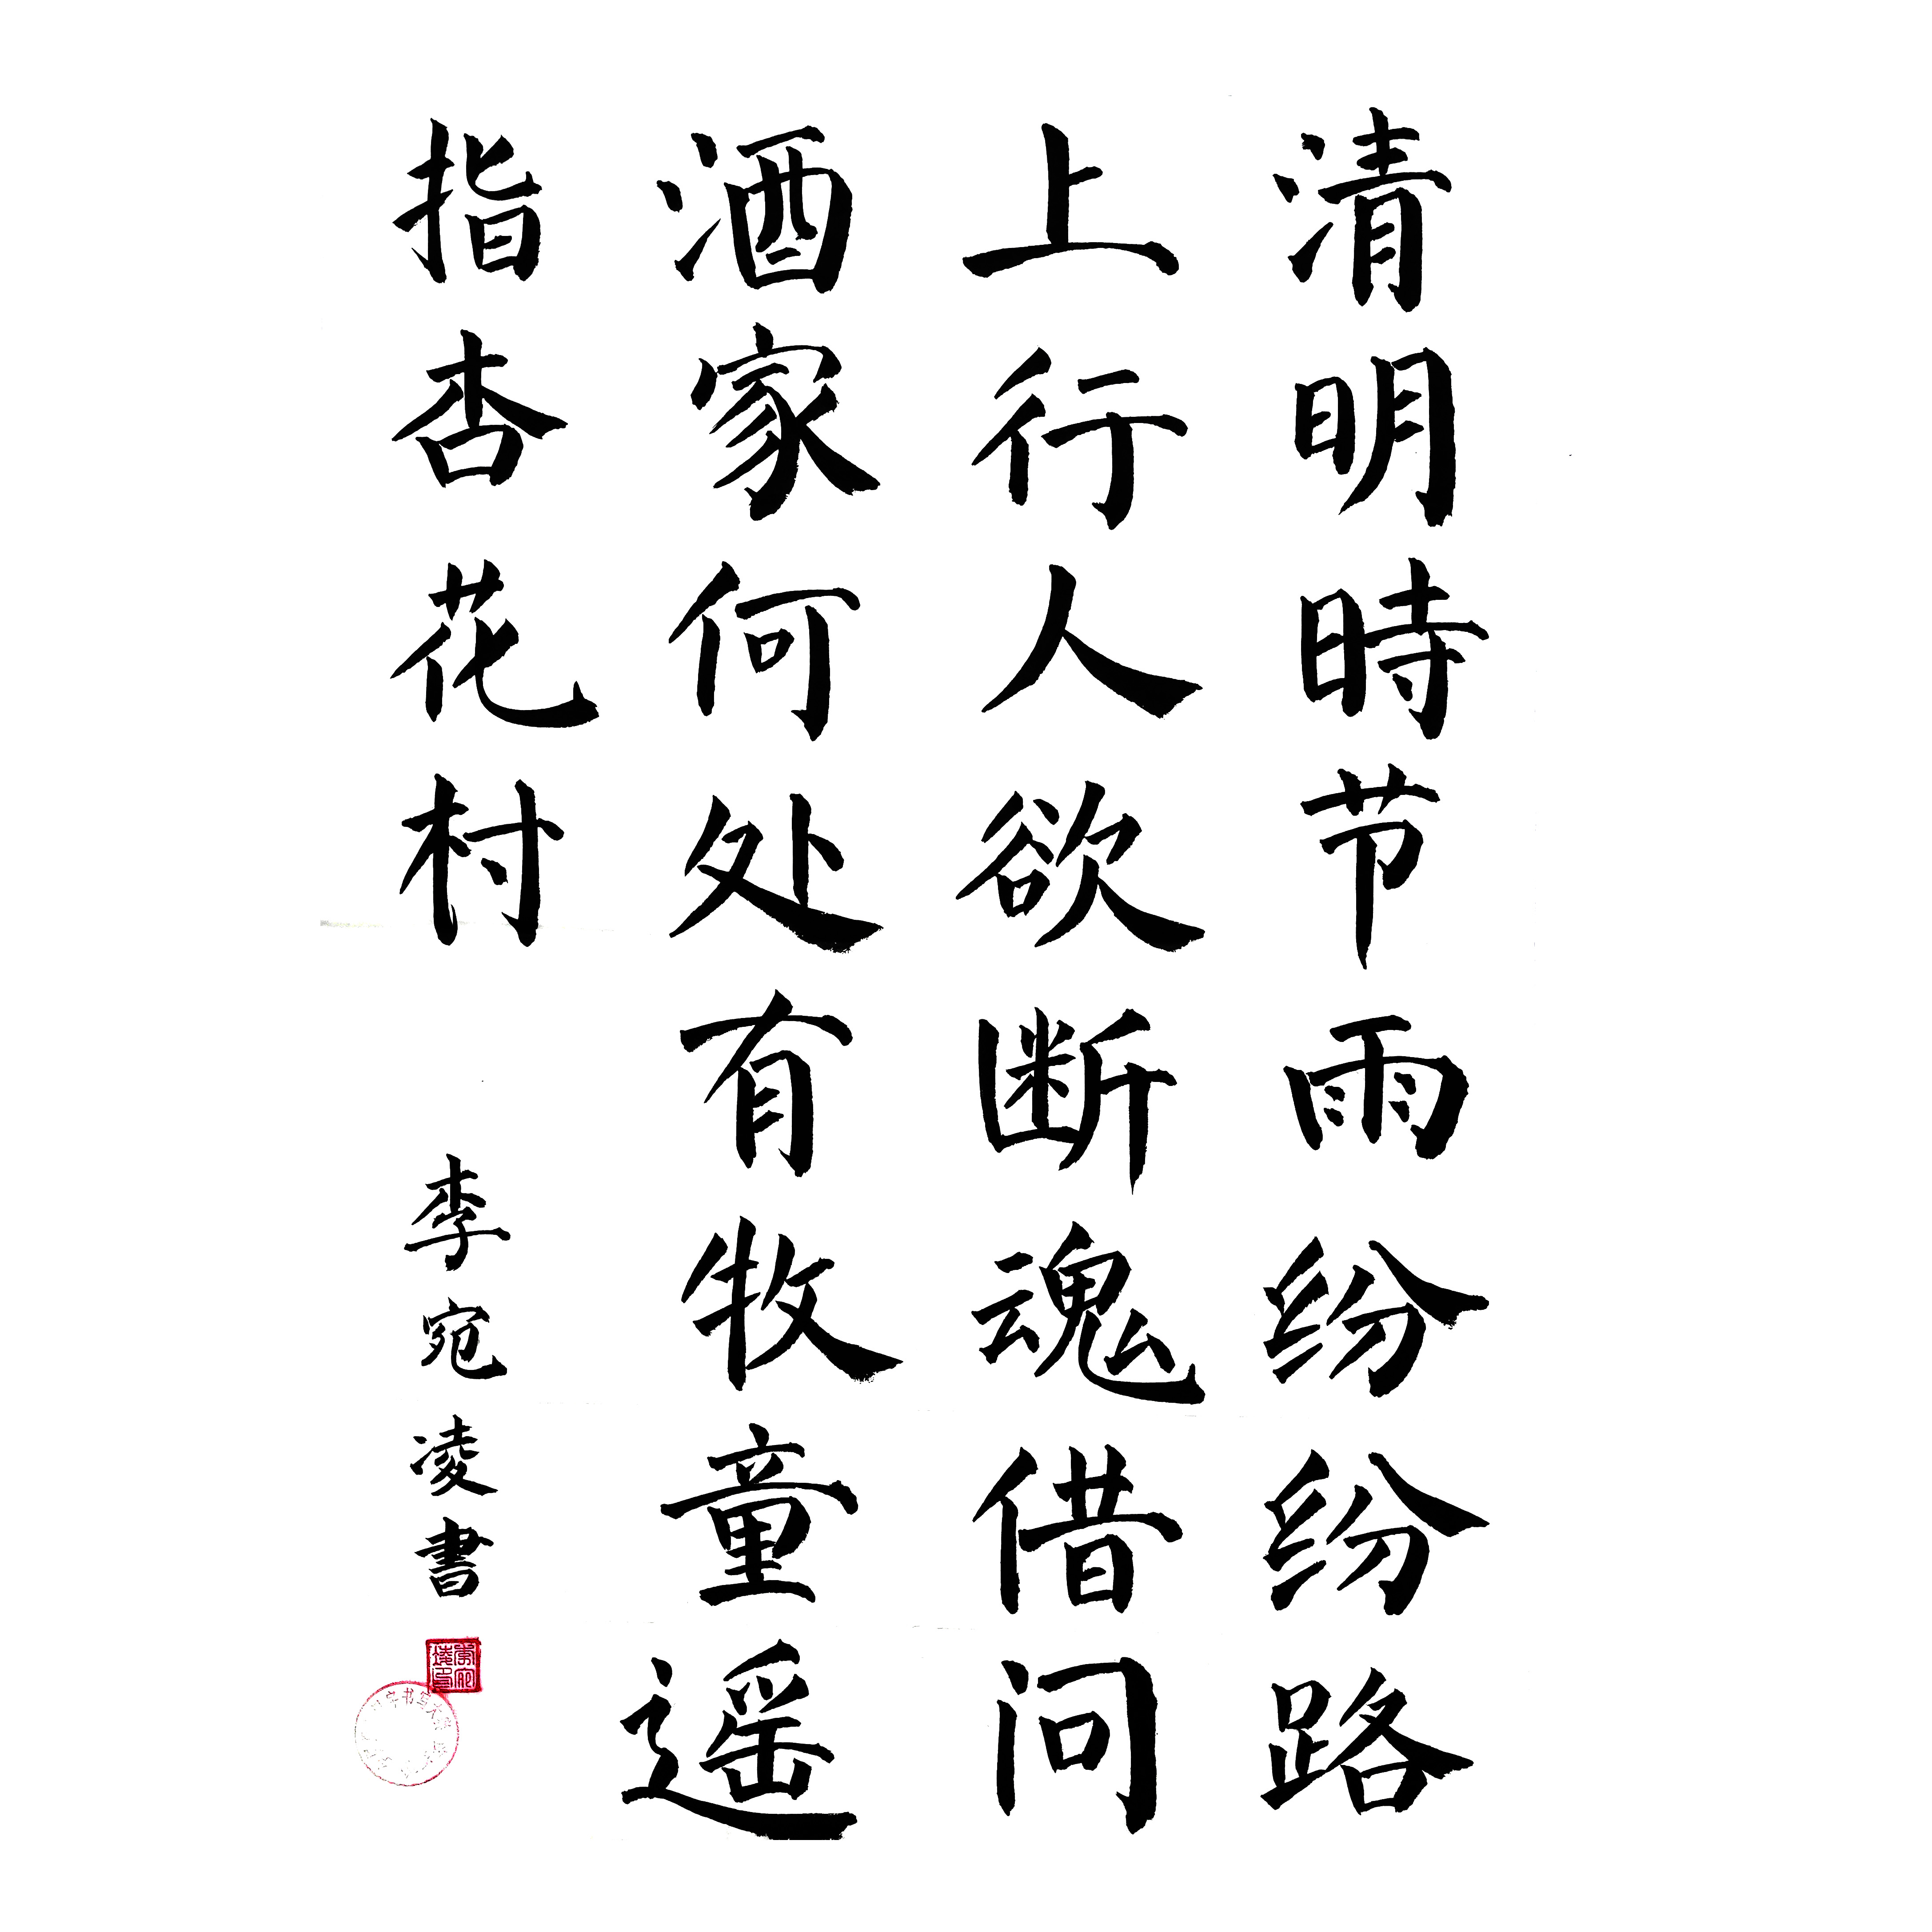 清明時节雨纷纷路
上行人欲断魂借问
酒家何处有牧童遥
指杏花村
李宛凌書